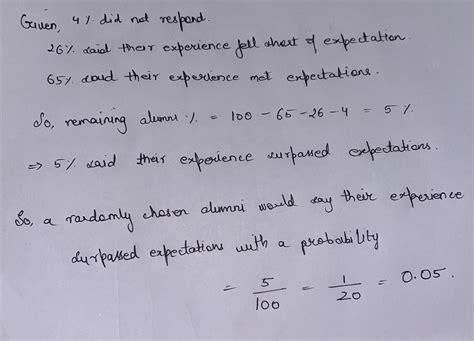 Given, 4% did not respond.
26% said their experience fell short of expectation.
65% said their experience met expectations.
So, remaining alumni % = 100 - 65 - 26 - 4 = 5%
⇒ 5% said their experience surpassed expectations.
So, a randomly chosen alumni would say their experience
surpassed expectations with a probability
= 5/100 = 1/20 = 0.05.